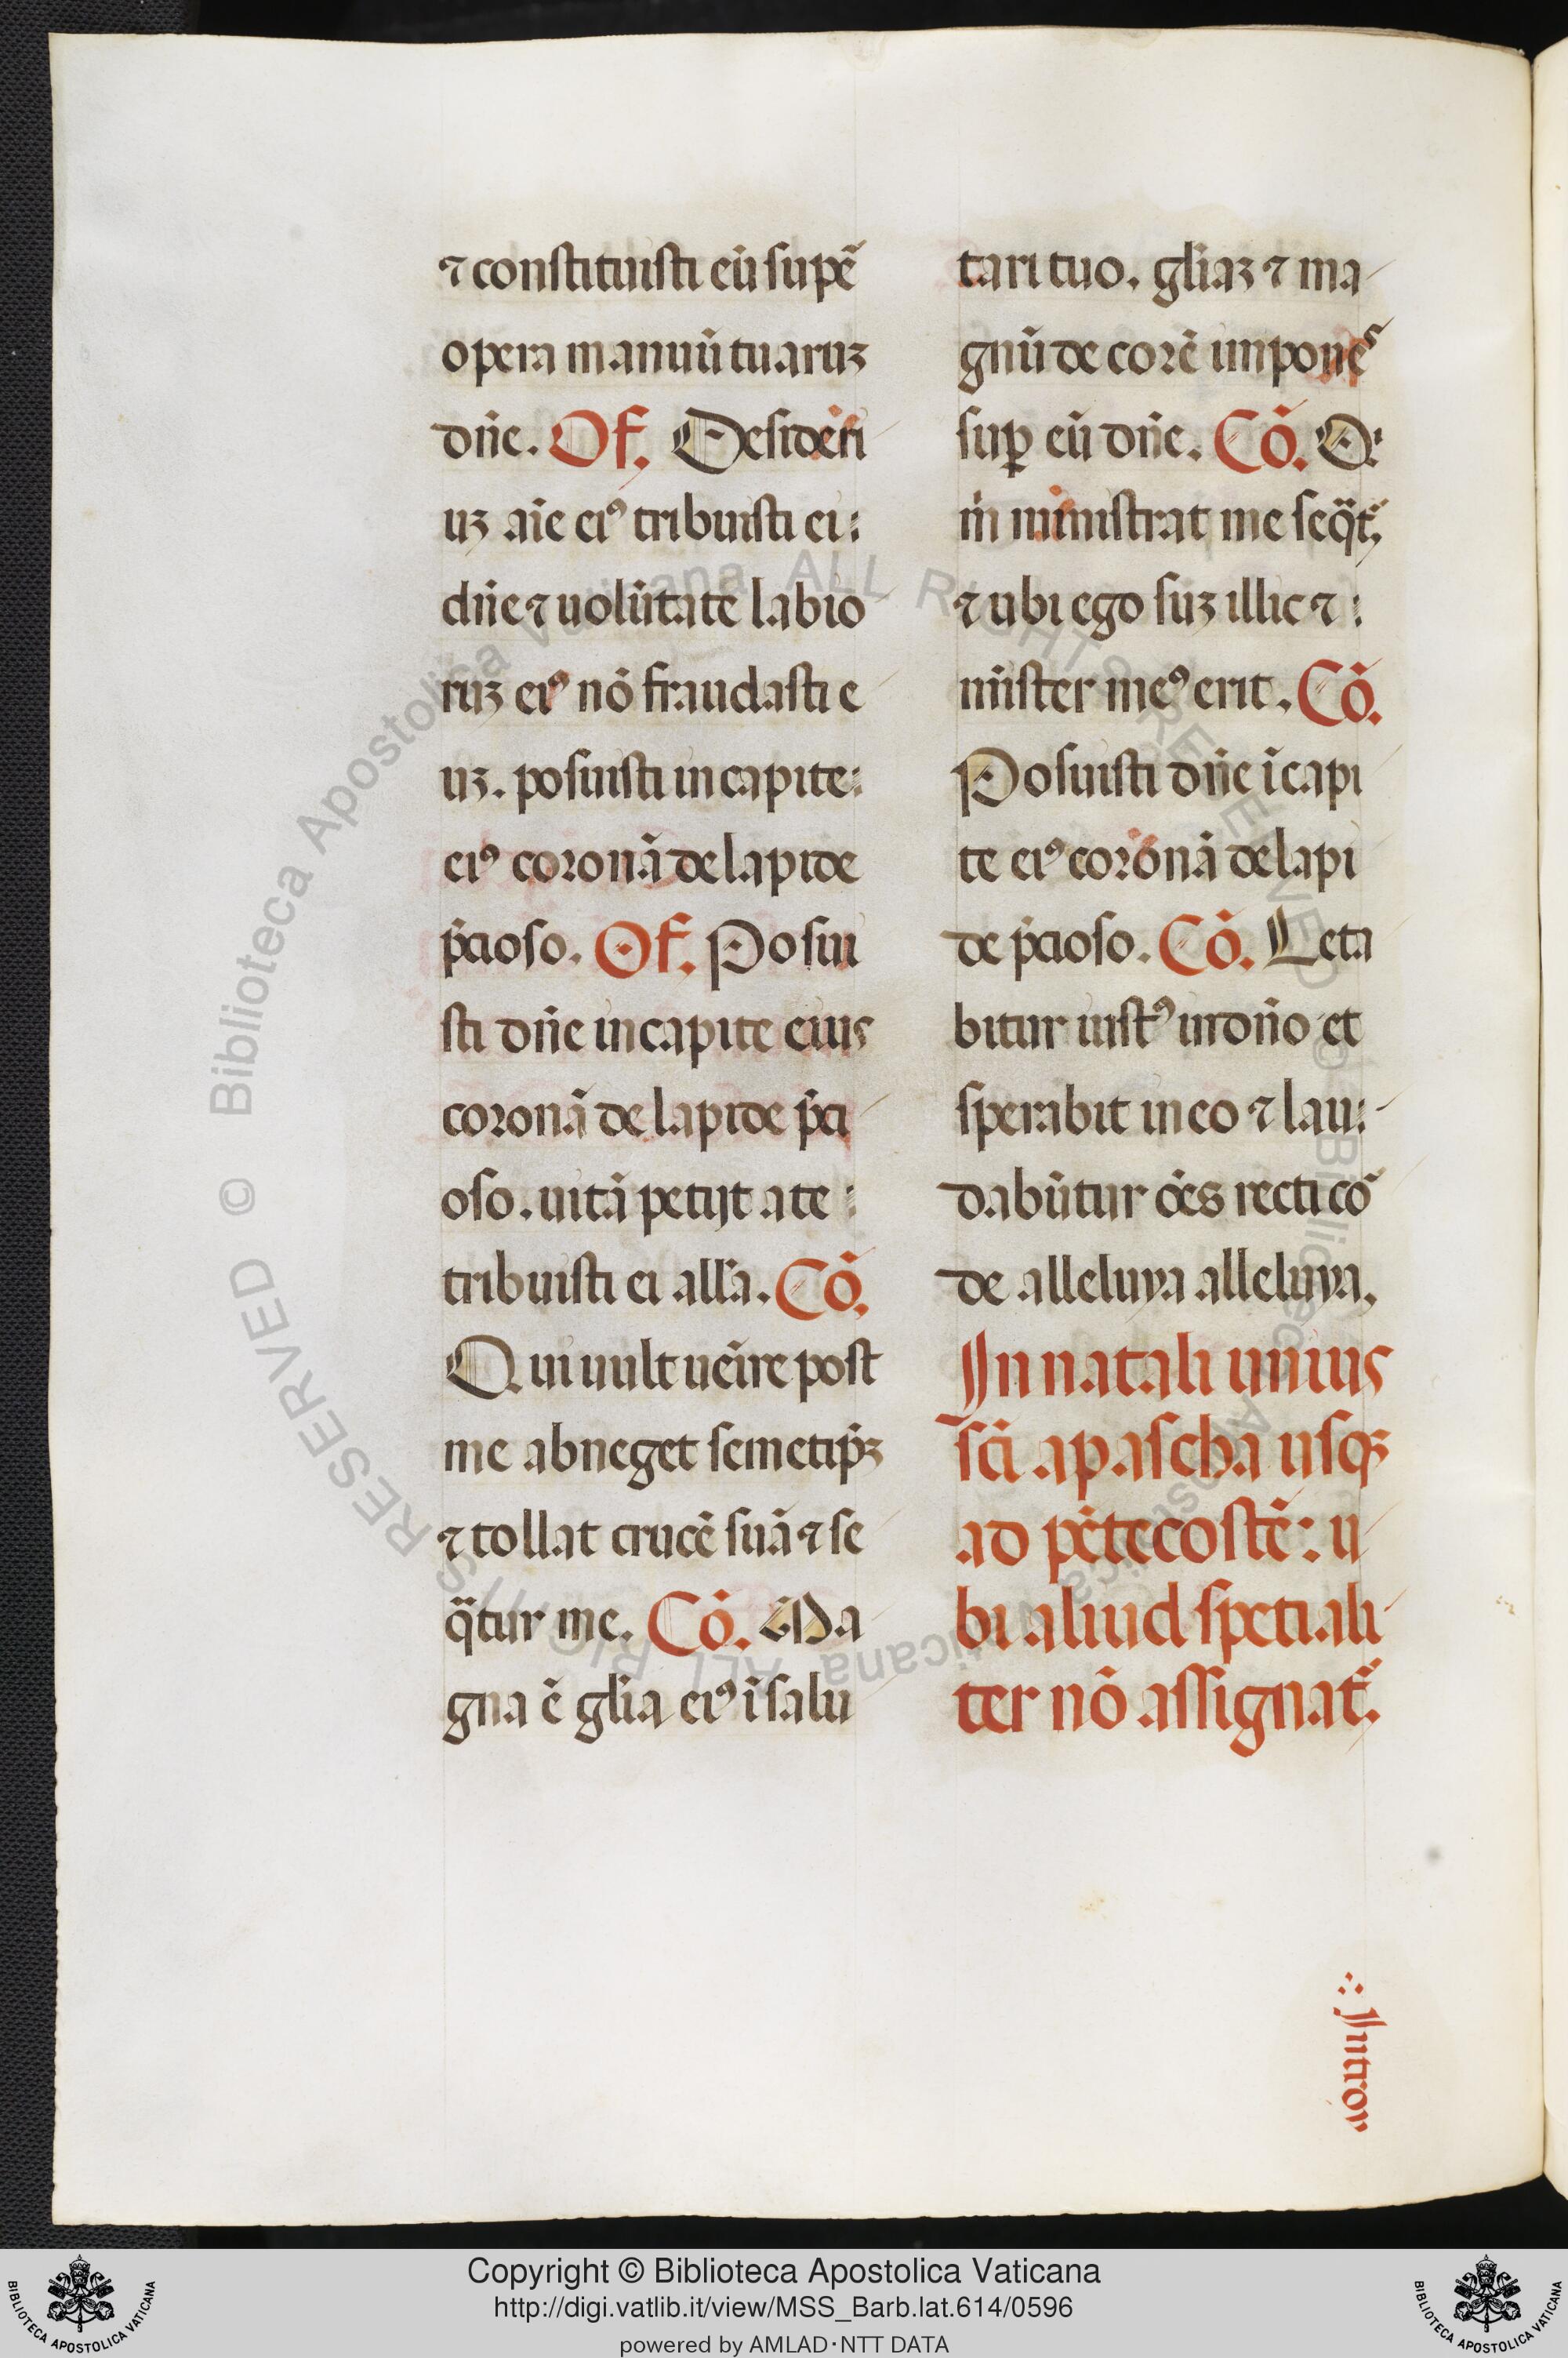 ⁊ constituisti eū supē
opera manuū tuaruꝫ
dn̄e. Of. Desideri
uꝫ aīe eiꝰ tribuisti ei:
dn̄e ⁊ uolūtate labio
ruꝫ eiꝰ nō fraudasti e
uꝫ. posuisti in capite:
eiꝰ coronā de lapide
p̄cioso. Of. Posui
sti dn̄e in capite eius
coronā de lapide p̄ci
oso. uitā petijt a te:
tribuisti ei all̄a. Cō.
Qui uult ueīre post
me abneget semetip̄ꝫ
⁊ tollat crucē suā ⁊ se
q̄tur me. Cō. Ma
gna ē gl̄ia eiꝰ ī salu
tari tuo. gl̄iaꝫ ⁊ ma
gnū decorē imponeˢ
suꝑ eū dn̄e. Cō. Qⁱ
m̄ ministrat me seq̄t᷑,
⁊ ubi ego suꝫ illic ⁊:
mīister meꝰ erit. Cō.
Posuisti dn̄e ī capi
te eiꝰ coronā de lapi
de p̄cioso. Cō. Leta
bitur iustꝰ in dn̄o et
sperabit in eo ⁊ lau:
dabūtur oēs recti cor̄
de alleluya alleluya.
In natali unius
sc̄i a pascha usqꝫ
ad pētecostē: u
bi aliud spetiali
ter nō assignat᷑.
Copyright © Biblioteca Apostolica Vaticana
http://digi.vatlib.it/view/MSS_Barb.lat.614/0596
powered by AMLAD·NTT DATA
BIBLIOTECA APOSTOLICA VATICANA
BIBLIOTECA APOSTOLICA VATICANA